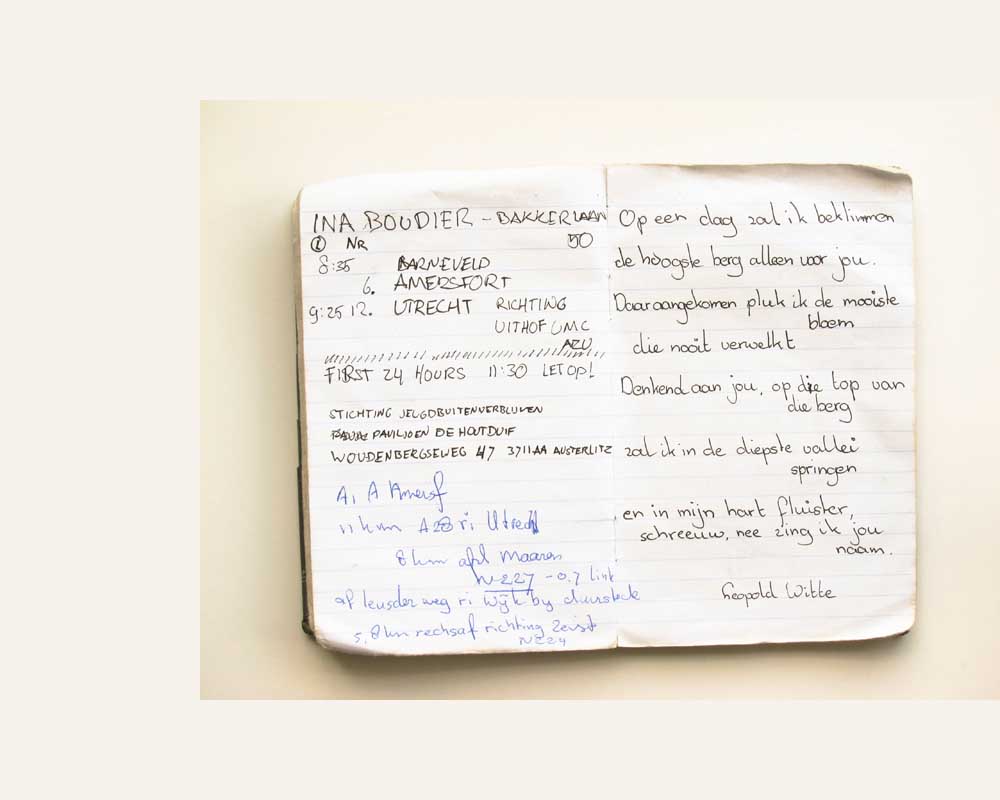 INA BOUDIER - BAKKERLAAN
① NR 50
8:35 BARNEVELD
6. AMERSFORT
9:25 12. UTRECHT RICHTING
UITHOF UMC
AZU
FIRST 24 HOURS 11:30 LET OP!
STICHTING JEUGDBUITENVERBLIJVEN
PAVILJOEN DE HOUTDUIF
WOUDENBERGSEWEG 47 3711AA AUSTERLITZ
A1 A Amersf
11 km A28 ri Utrecht
8 km afsl Maaren
N-227 - 0.7 link
af leusderweg ri Wijk bij duurstede
5.8 km rechsaf richting Zeist
N224
Op een dag zal ik beklimmen
de hoogste berg alleen voor jou.
Daar aangekomen pluk ik de mooiste
bloem
die nooit verwelkt
Denkend aan jou, op die top van
die berg
zal ik in de diepste vallei
springen
en in mijn hart fluister,
schreeuw, nee zing ik jou
naam.
Leopold Witte